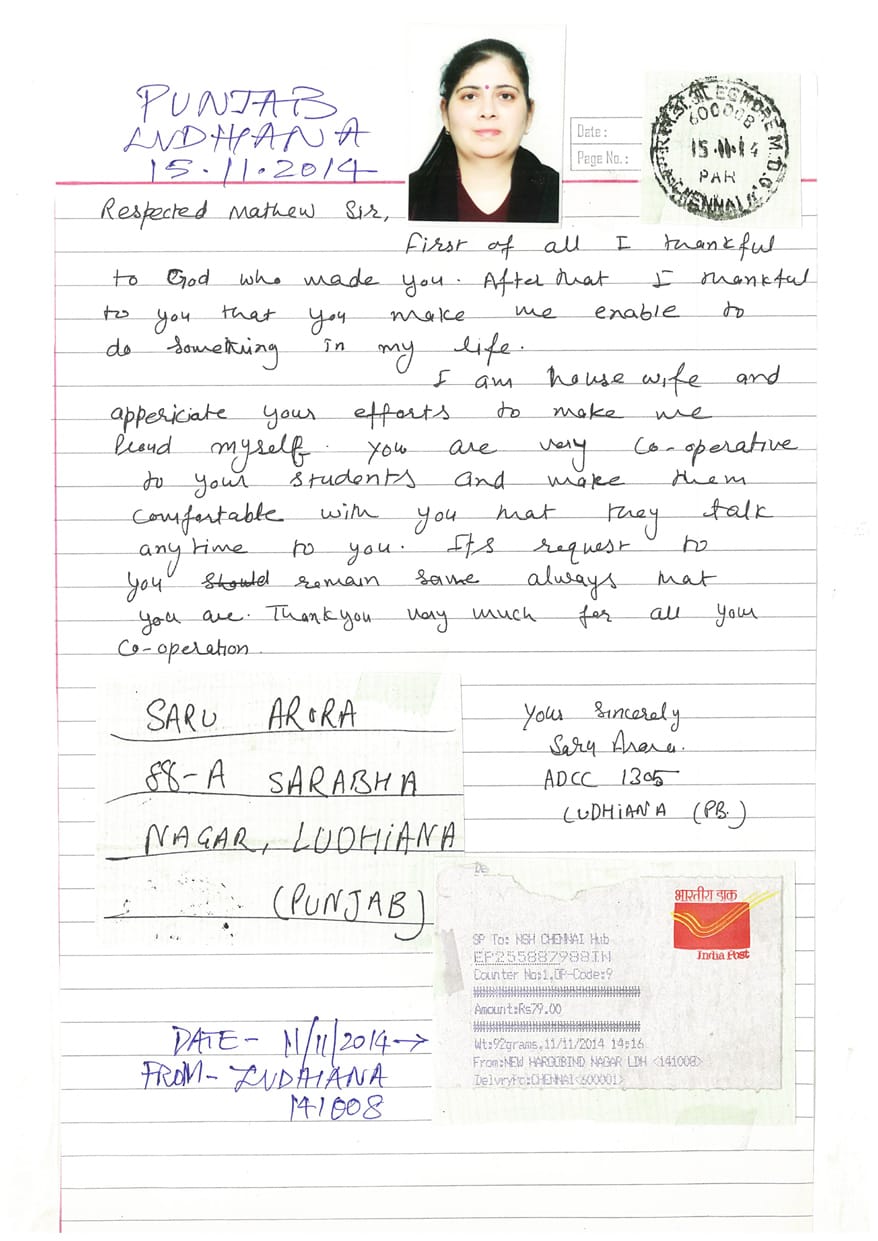 PUNJAB
LUDHIANA
15.11.2014
Date :
Page No. :
EGMORE M.D.O.
600008
15 11 14
PAR
CHENNAI
Respected Mathew Sir,
First of all I thankful
to God who made you. After that I thankful
to you that you make me enable to
do something in my life.
I am house wife and
appericiate your efforts to make me
Proud myself. You are very Co-operative
to your students and make them
Comfortable with you that they talk
any time to you. Its request to
you should remain same always that
you are. Thankyou very much for all your
Co-operation.
SARU ARORA
88-A SARABHA
NAGAR, LUDHIANA
(PUNJAB)
Your Sincerely
Saru Arora.
ADCC 1305
LUDHIANA (PB.)
भारतीय डाक
India Post
SP To: NSH CHENNAI Hub
EP255887988IN
Counter No:1,OP-Code:9
Amount:Rs79.00
Wt:92grams,11/11/2014 14:16
From:NEW HARGOBIND NAGAR LDH <141008>
Delvryto:CHENNAI<600001>
DATE - 11/11/2014→
FROM - LUDHIANA
141008